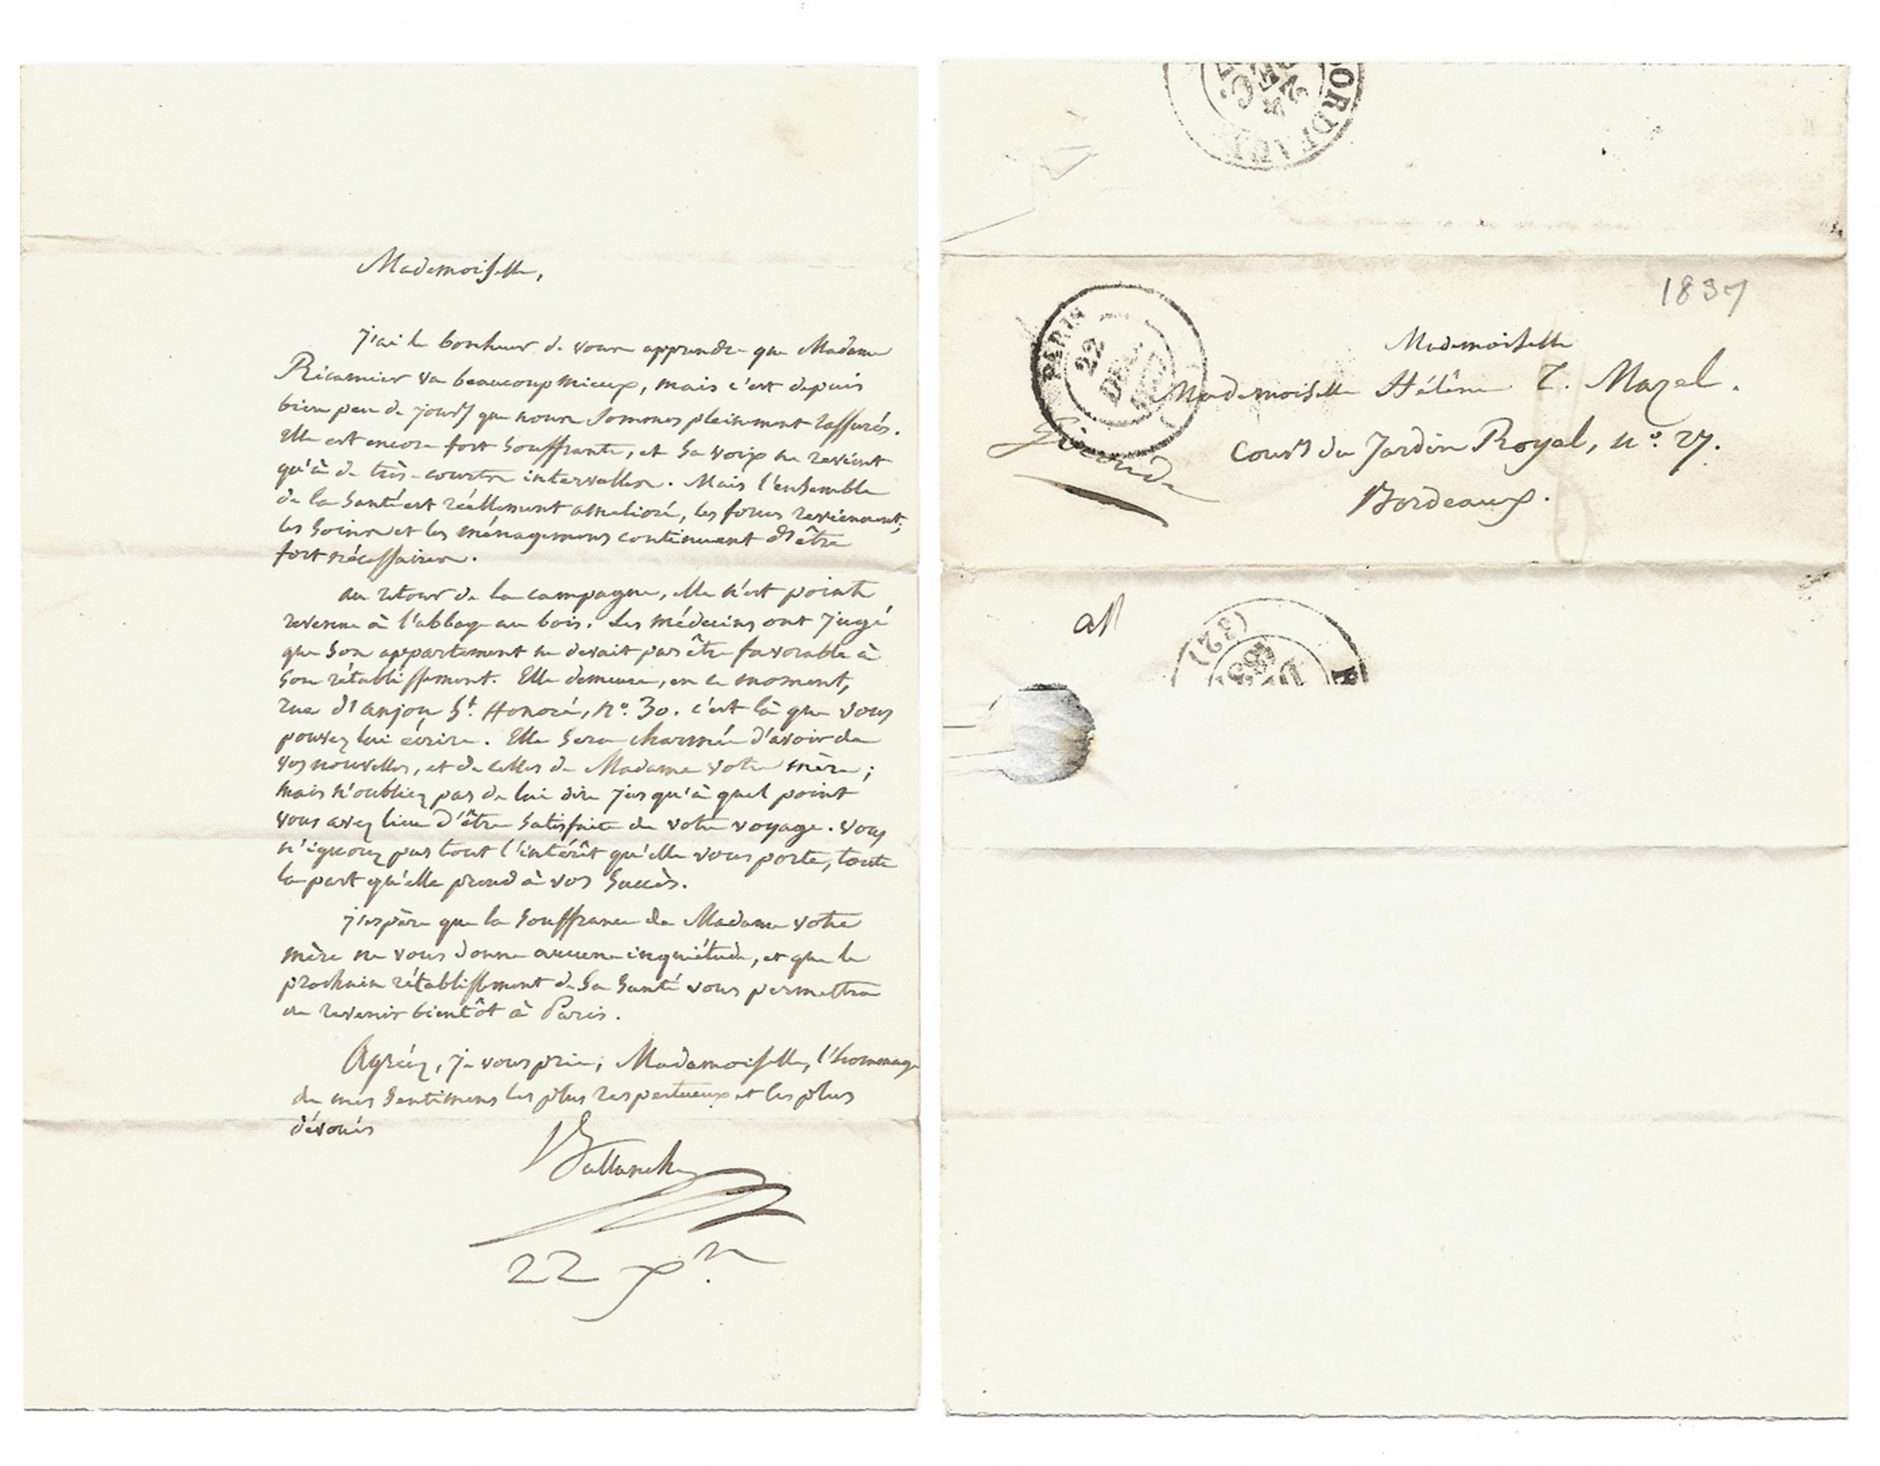 Mademoiselle,
j'ai le bonheur de vous apprendre que Madame
Récamier va beaucoup mieux, mais c'est depuis
bien peu de jours que nous sommes pleinement rassurés.
Elle est encore fort souffrante, et sa voix ne revient
qu'à de très-courts intervalles. Mais l'ensemble
de la santé est réellement amelioré, les forces reviennent;
les soins et les ménagemens continuent d'être
fort nécessaires.
au retour de la campagne, elle n'est point
revenue à l'abbaye au bois. Les médecins ont jugé
que son appartement ne devait pas être favorable à
son rétablissement. Elle demeure, en ce moment,
rue d'anjou St. Honoré, no. 30. c'est là que vous
pouvez lui écrire. Elle sera charmée d'avoir de
vos nouvelles, et de celles de Madame votre mère;
mais n'oubliez pas de lui dire jusqu'à quel point
vous avez lieu d'être satisfaite de votre voyage. Vous
n'ignorez pas tout l'intérêt qu'elle vous porte, toute
la part qu'elle prend à vos succès.
j'espère que la souffrance de Madame votre
mère ne vous donne aucune inquiétude, et que le
prochain rétablissement de sa santé vous permettra
de revenir bientôt à Paris.
Agréez, je vous prie, Mademoiselle, l'hommage
de mes sentimens les plus respectueux et les plus
dévoués
Ballanche
22 Xre.
BORDEAUX
24
DEC.
1837
PARIS
22
DEC.
Mademoiselle
Mademoiselle Hélène T. Mazel.
Cours du Jardin Royal, no. 27.
Bordeaux.
Gironde
(32)